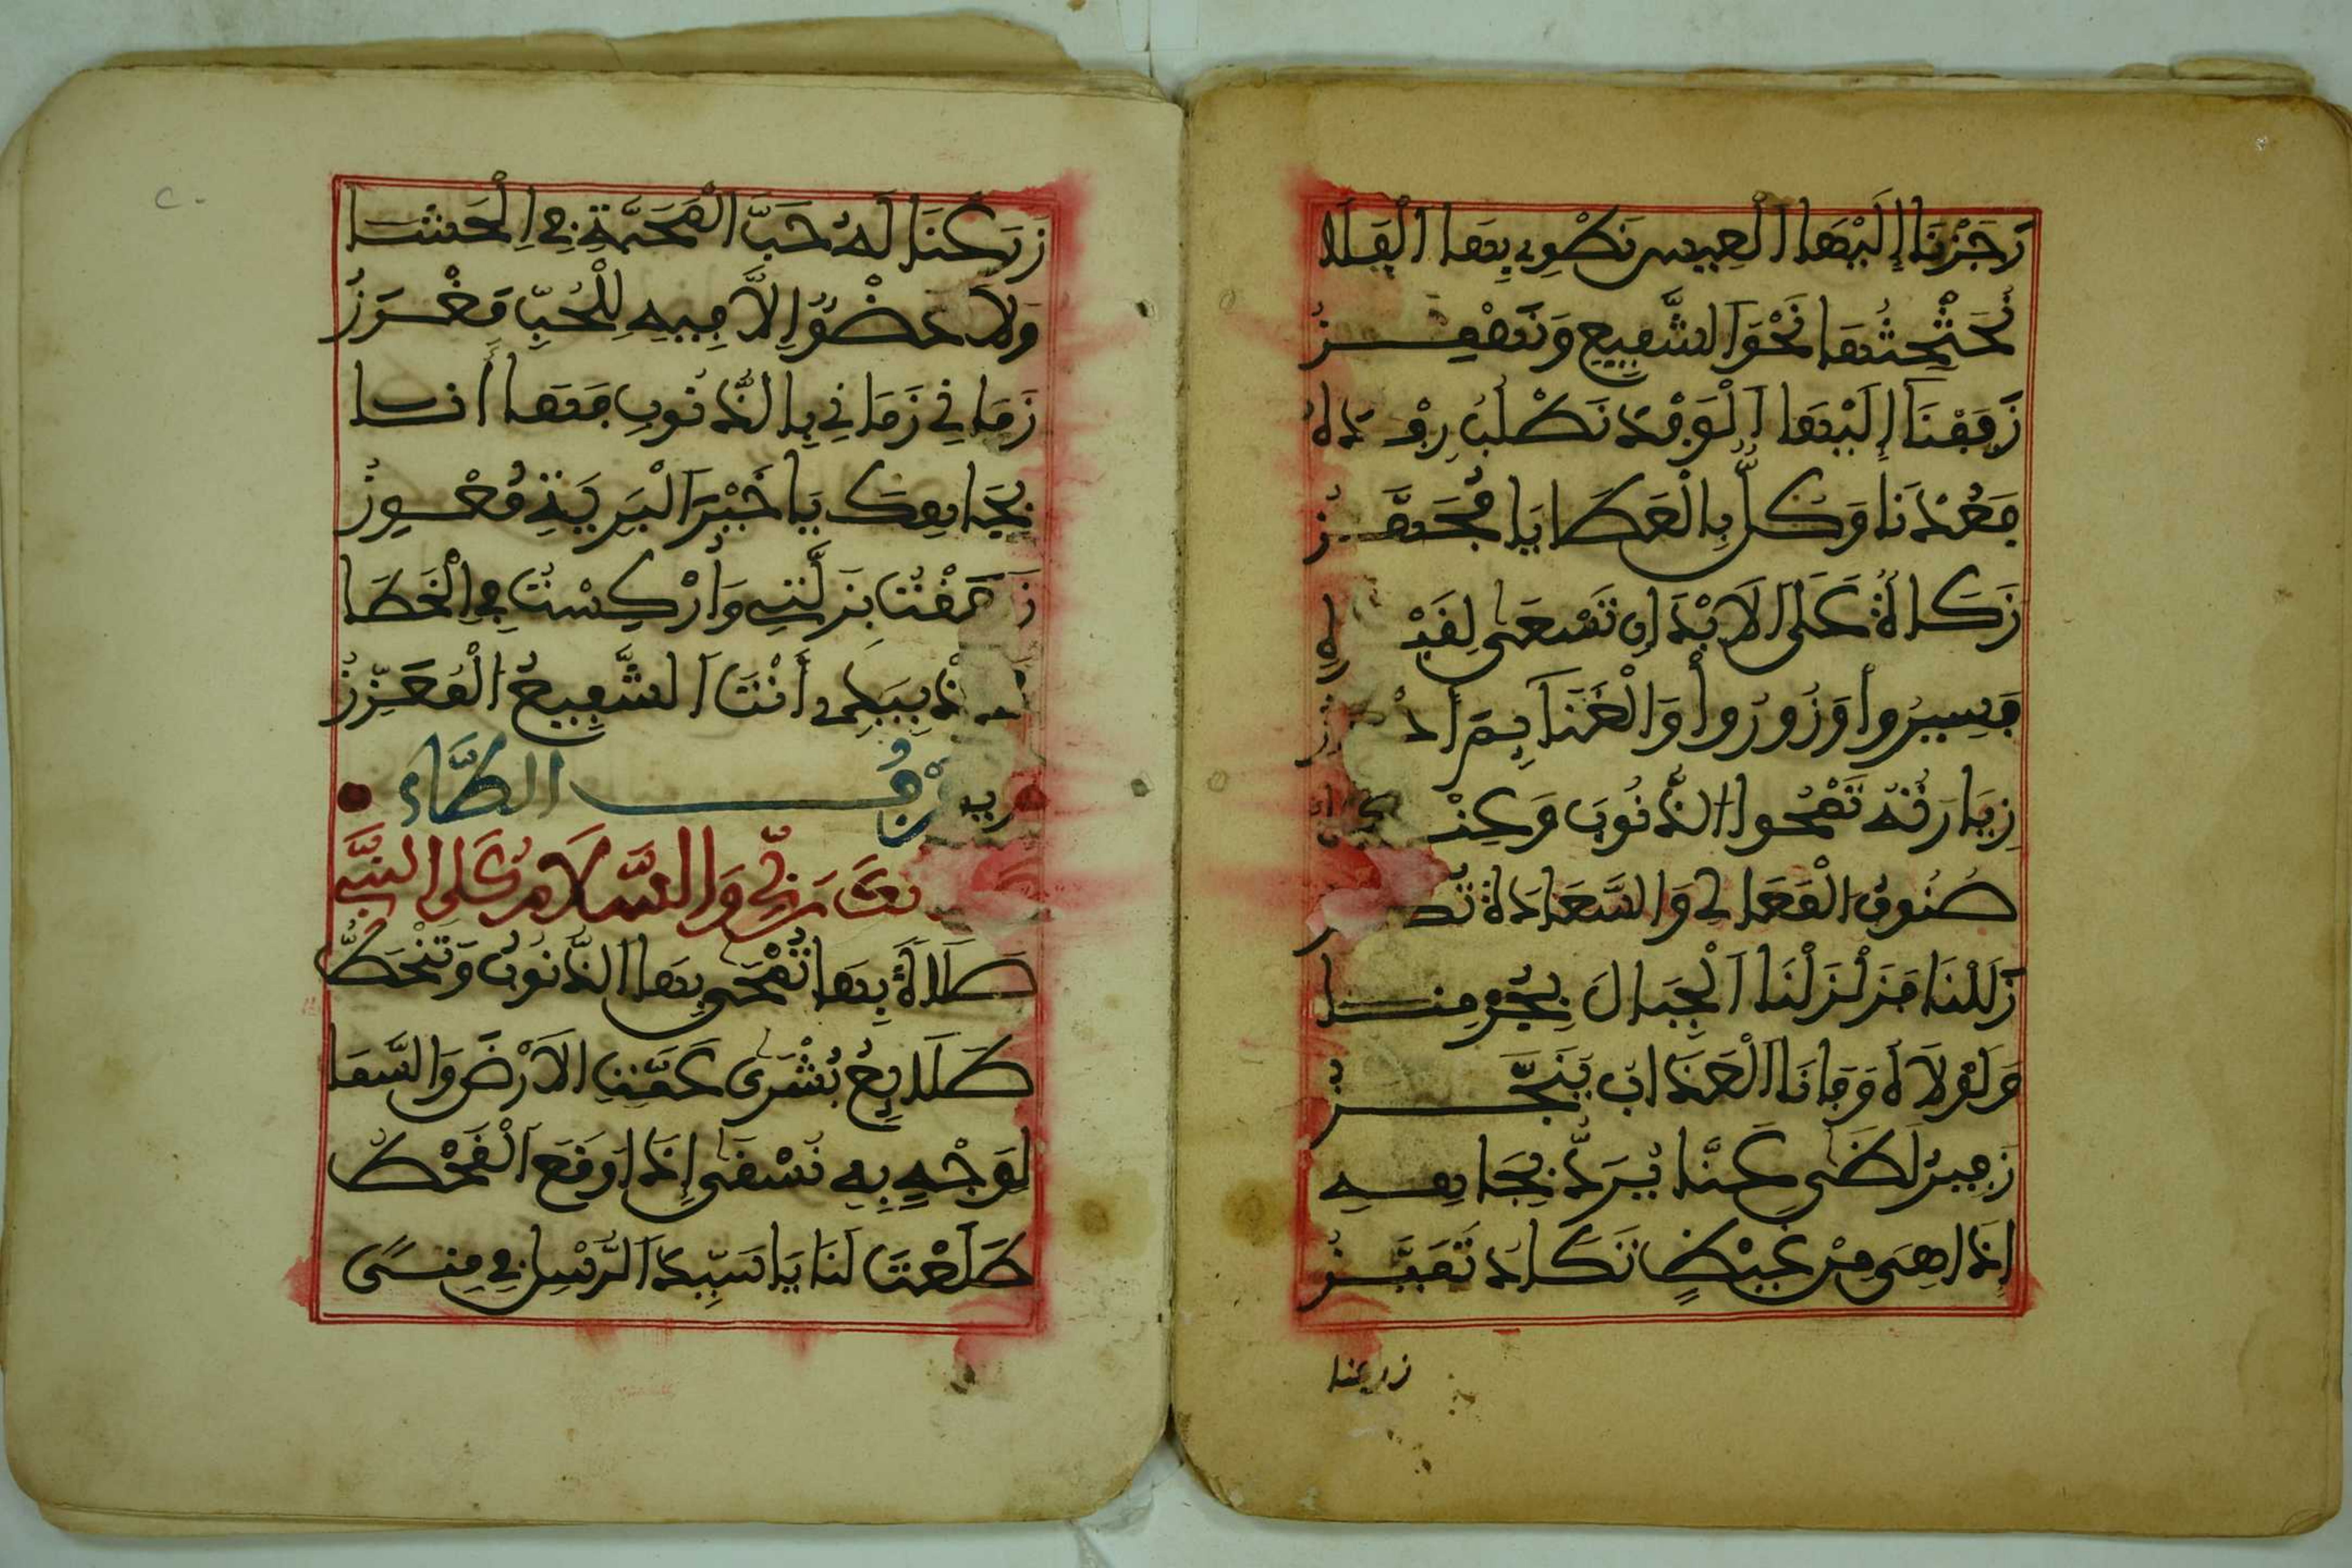 زَجَرْنَا إِلَيْهَا الْعِيسَ نَطْوِي بِهَا الْفَلَا
نُحَثْحِثُهَا نَحْوَ الشَّفِيعِ وَنَهْمِزُ
زَفَفْنَا إِلَيْهَا الْوَفْدَ نَطْلُبُ رِفْدَهُ
فَعُدْنَا وَكُلٌّ بِالْعَطَايَا مُجَهَّزُ
زَكَاةٌ عَلَى الَابْدَانِ تَسْعَى لِقَبْرِهِ
فَسِيرُوا وَزُورُوا وَالْغِنَا
زِيَارَتُهُ تَمْحُوا الذُّنُوبَ وَعِنْدَهُ
صُنُوفُ الْمَعَالِي وَالسَّعَادَةُ
زَلَلْنَا فَزَلْزَلْنَا الْجِبَالَ بِجُرْمِنَا
وَلَوْلَاهُ وَفَانَا الْعَذَابُ يُنَجَّزُ
زَفِيرُ لَظَى عَنَّا يُرَدُّ بِجَاهِهِ
إِذَا هِيَ مِنْ غَيْظٍ تَكَادُ تَمَيَّزُ
زرعنا
زَرَعْنَا لَهُ حَبَّ الْمَحَبَّةِ فِي الْحَشَا
وَلَا عُضْوُ إِلَّا فِيهِ لِلْحُبِّ مَغْرَزُ
زَمَانِي زَمَانِي بِالذُّنُوبِ فَهَا أَنَا
بِجَاهِكَ يَا خَيْرَ الْبَرِيَّةِ مُعْوِزُ
زَحَفْتُ بِزَلَّتِي وَأُرْكِسْتُ فِي الْخَطَا
بِيَدِي أَنْتَ الشَّفِيعُ الْمُعَزِّزُ
حَرْفُ الطَّاءِ
رَبِّي وَالسَّلَامُ عَلَى النَّبِي
صَلَاةً بِهَا تُمْحَى بِهَا الذُّنُوبُ وَتَنْحَطُّ
طَلَايِعُ بُشْرَى عَمَّتِ الَارْضَ وَالسَّمَا
لِوَجْهٍ بِهِ نُسْقَى إِذَا وَقَعَ الْقَحْطُ
طَلَعْتَ لَنَا يَا سَيِّدَ الرُّسْلِ فِي مِنًى